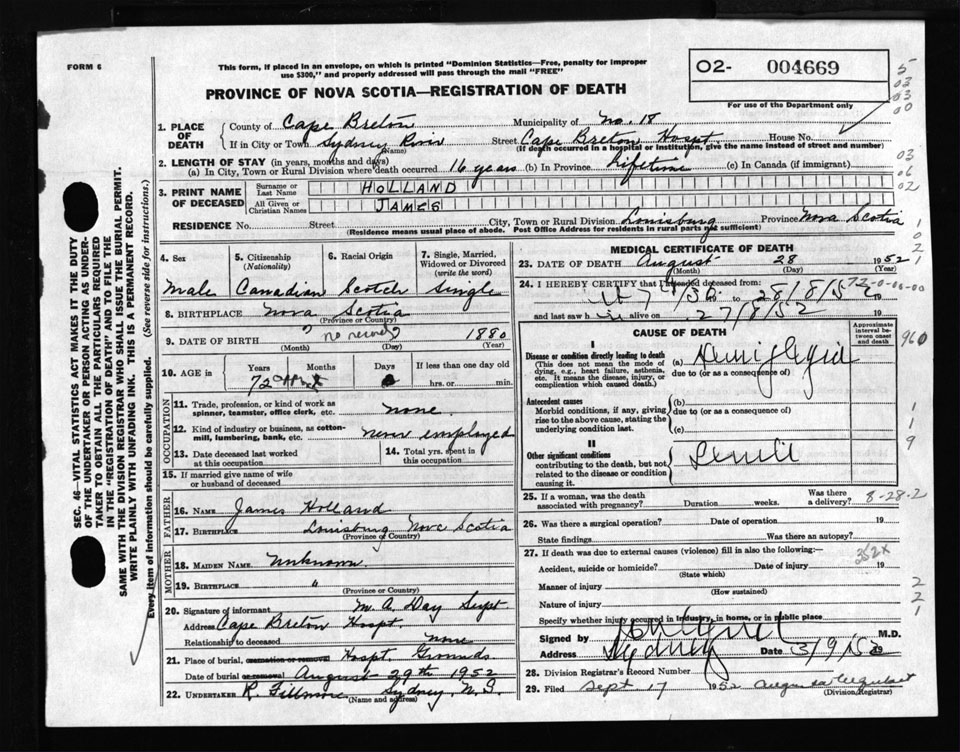 FORM 6
This form, if placed in an envelope, on which is printed "Dominion Statistics—Free, penalty for improper
use $300," and properly addressed will pass through the mail "FREE"
PROVINCE OF NOVA SCOTIA—REGISTRATION OF DEATH
O2- 004669
For use of the Department only
5
03
03
00
1. PLACE OF DEATH
County of Cape Breton Municipality of No. 18
If in City or Town Sydney River Street Cape Breton Hospt. House No.
(Name) (If death occurred in a hospital or institution, give the name instead of street and number)
2. LENGTH OF STAY (in years, months and days)
(a) In City, Town or Rural Division where death occurred 16 years (b) In Province lifetime (c) In Canada (if immigrant)
03
06
02
3. PRINT NAME OF DECEASED
Surname or Last Name HOLLAND
All Given or Christian Names JAMES
RESIDENCE No. Street City, Town or Rural Division Louisburg Province Nova Scotia
(Residence means usual place of abode. Post Office Address for residents in rural parts not sufficient)
1
0
2
1
4. Sex Male
5. Citizenship (Nationality) Canadian
6. Racial Origin Scotch
7. Single, Married, Widowed or Divorced (write the word) Single
8. BIRTHPLACE Nova Scotia
(Province or Country)
9. DATE OF BIRTH ? no record ? 1880
(Month) (Day) (Year)
10. AGE in Years Months Days If less than one day
72 hrs. or min.
OCCUPATION
11. Trade, profession, or kind of work as spinner, teamster, office clerk, etc. none.
12. Kind of industry or business, as cotton-mill, lumbering, bank, etc. never employed
13. Date deceased last worked at this occupation
14. Total yrs. spent in this occupation
15. If married give name of wife or husband of deceased
FATHER
16. NAME James Holland
17. BIRTHPLACE Louisburg Nova Scotia
(Province or Country)
MOTHER
18. MAIDEN NAME Unknown.
19. BIRTHPLACE "
(Province or Country)
20. Signature of informant M. A. Day Supt
Address Cape Breton Hospt.
Relationship to deceased none
21. Place of burial, cremation or removal Hospt. Grounds
Date of burial or removal August 29th 1952
22. UNDERTAKER R. Fillmore Sydney, N.S.
(Name and address)
MEDICAL CERTIFICATE OF DEATH
23. DATE OF DEATH August 28 1952
(Month) (Day) (Year)
24. I HEREBY CERTIFY that I attended deceased from:
to 28/8/52 19
72-0-00-00
and last saw h alive on 27/8/52 19
CAUSE OF DEATH
Approximate interval between onset and death
960
I
Disease or condition directly leading to death
(This does not mean the mode of dying, e.g., heart failure, asthenia, etc. It means the disease, injury, or complication which caused death.)
(a) Hemiplegia
due to (or as a consequence of)
Antecedent causes
Morbid conditions, if any, giving rise to the above cause, stating the underlying condition last.
(b)
due to (or as a consequence of)
(c)
1
1
9
II
Other significant conditions
contributing to the death, but not related to the disease or condition causing it.
Senile
25. If a woman, was the death associated with pregnancy? Duration weeks. Was there a delivery?
8-28-2
26. Was there a surgical operation? Date of operation 19
State findings Was there an autopsy?
27. If death was due to external causes (violence) fill in also the following:—
352x
Accident, suicide or homicide? Date of injury 19
(State which)
Manner of injury
(How sustained)
Nature of injury
Specify whether injury occurred in industry, in home, or in public place
2
2
1
Signed by M.D.
Address Sydney Date 3/9/52 19
28. Division Registrar's Record Number
29. Filed Sept 17 1952
(Division Registrar)
SEC. 46—VITAL STATISTICS ACT MAKES IT THE DUTY
OF THE UNDERTAKER OR PERSON ACTING AS UNDER-
TAKER TO OBTAIN ALL THE PARTICULARS REQUIRED
IN THE "REGISTRATION OF DEATH" AND TO FILE THE
SAME WITH THE DIVISION REGISTRAR WHO SHALL ISSUE THE BURIAL PERMIT.
WRITE PLAINLY WITH UNFADING INK. THIS IS A PERMANENT RECORD.
Every item of information should be carefully supplied. (See reverse side for instructions.)